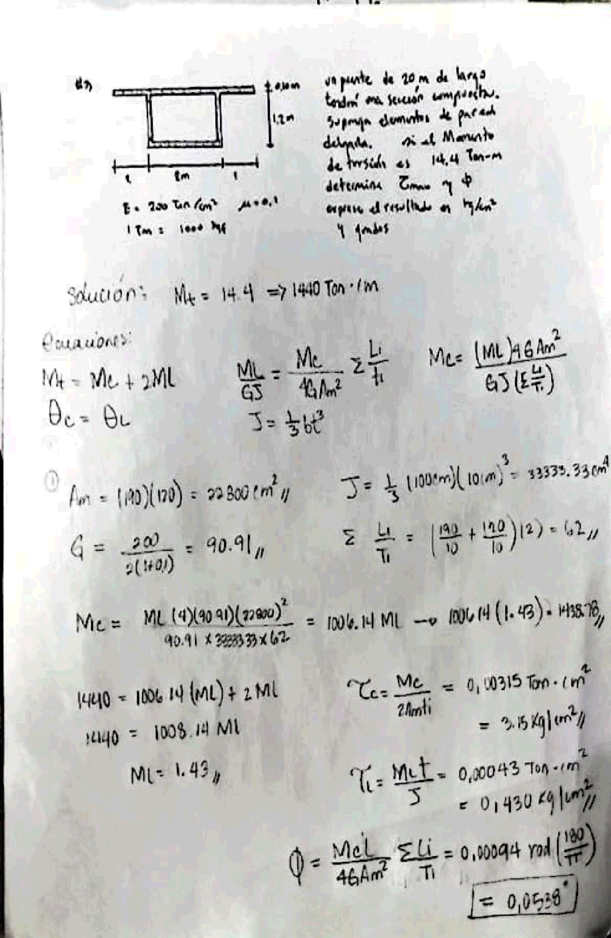 un puente de 20 m de largo
tendrá una sección compuesta.
Suponga elementos de pared
delgada. si el Momento
de torsión es 14.4 Ton-m
determine τmax y φ
exprese el resultado en kg/cm²
y grados
0,10m
1,2m
1 2m 1
E = 200 Ton/cm² μ=0,1
1 Ton = 1000 kgf
Solución: Mt = 14.4 => 1440 Ton·cm
Ecuaciones:
Mt = Mc + 2ML
θc = θL
ML/GJ = Mc/4GAm² Σ Li/ti
J = 1/3 bt³
Mc = (ML)4GAm² / GJ(Σ Li/Ti)
① Am = (190)(120) = 22800 cm² //
J = 1/3 (100cm)(10cm)³ = 33333.33cm⁴
G = 200/2(1+0,1) = 90.91 //
Σ Li/Ti = (190/10 + 120/10)(2) = 62 //
Mc = ML(4)(90.91)(22800)² / 90.91 x 33333.33 x 62 = 1006.14 ML → 1006.14 (1.43) = 1438.78 //
1440 = 1006.14 (ML) + 2ML
1440 = 1008.14 Ml
Ml = 1.43 //
τc = Mc/2Amti = 0,00315 Ton·cm²
= 3.15 kg/cm² //
τL = MLt/J = 0,00043 Ton·cm²
= 0,430 kg/cm² //
φ = McL/4GAm² ΣLi/Ti = 0,00094 rad (180/π)
= 0,0538°